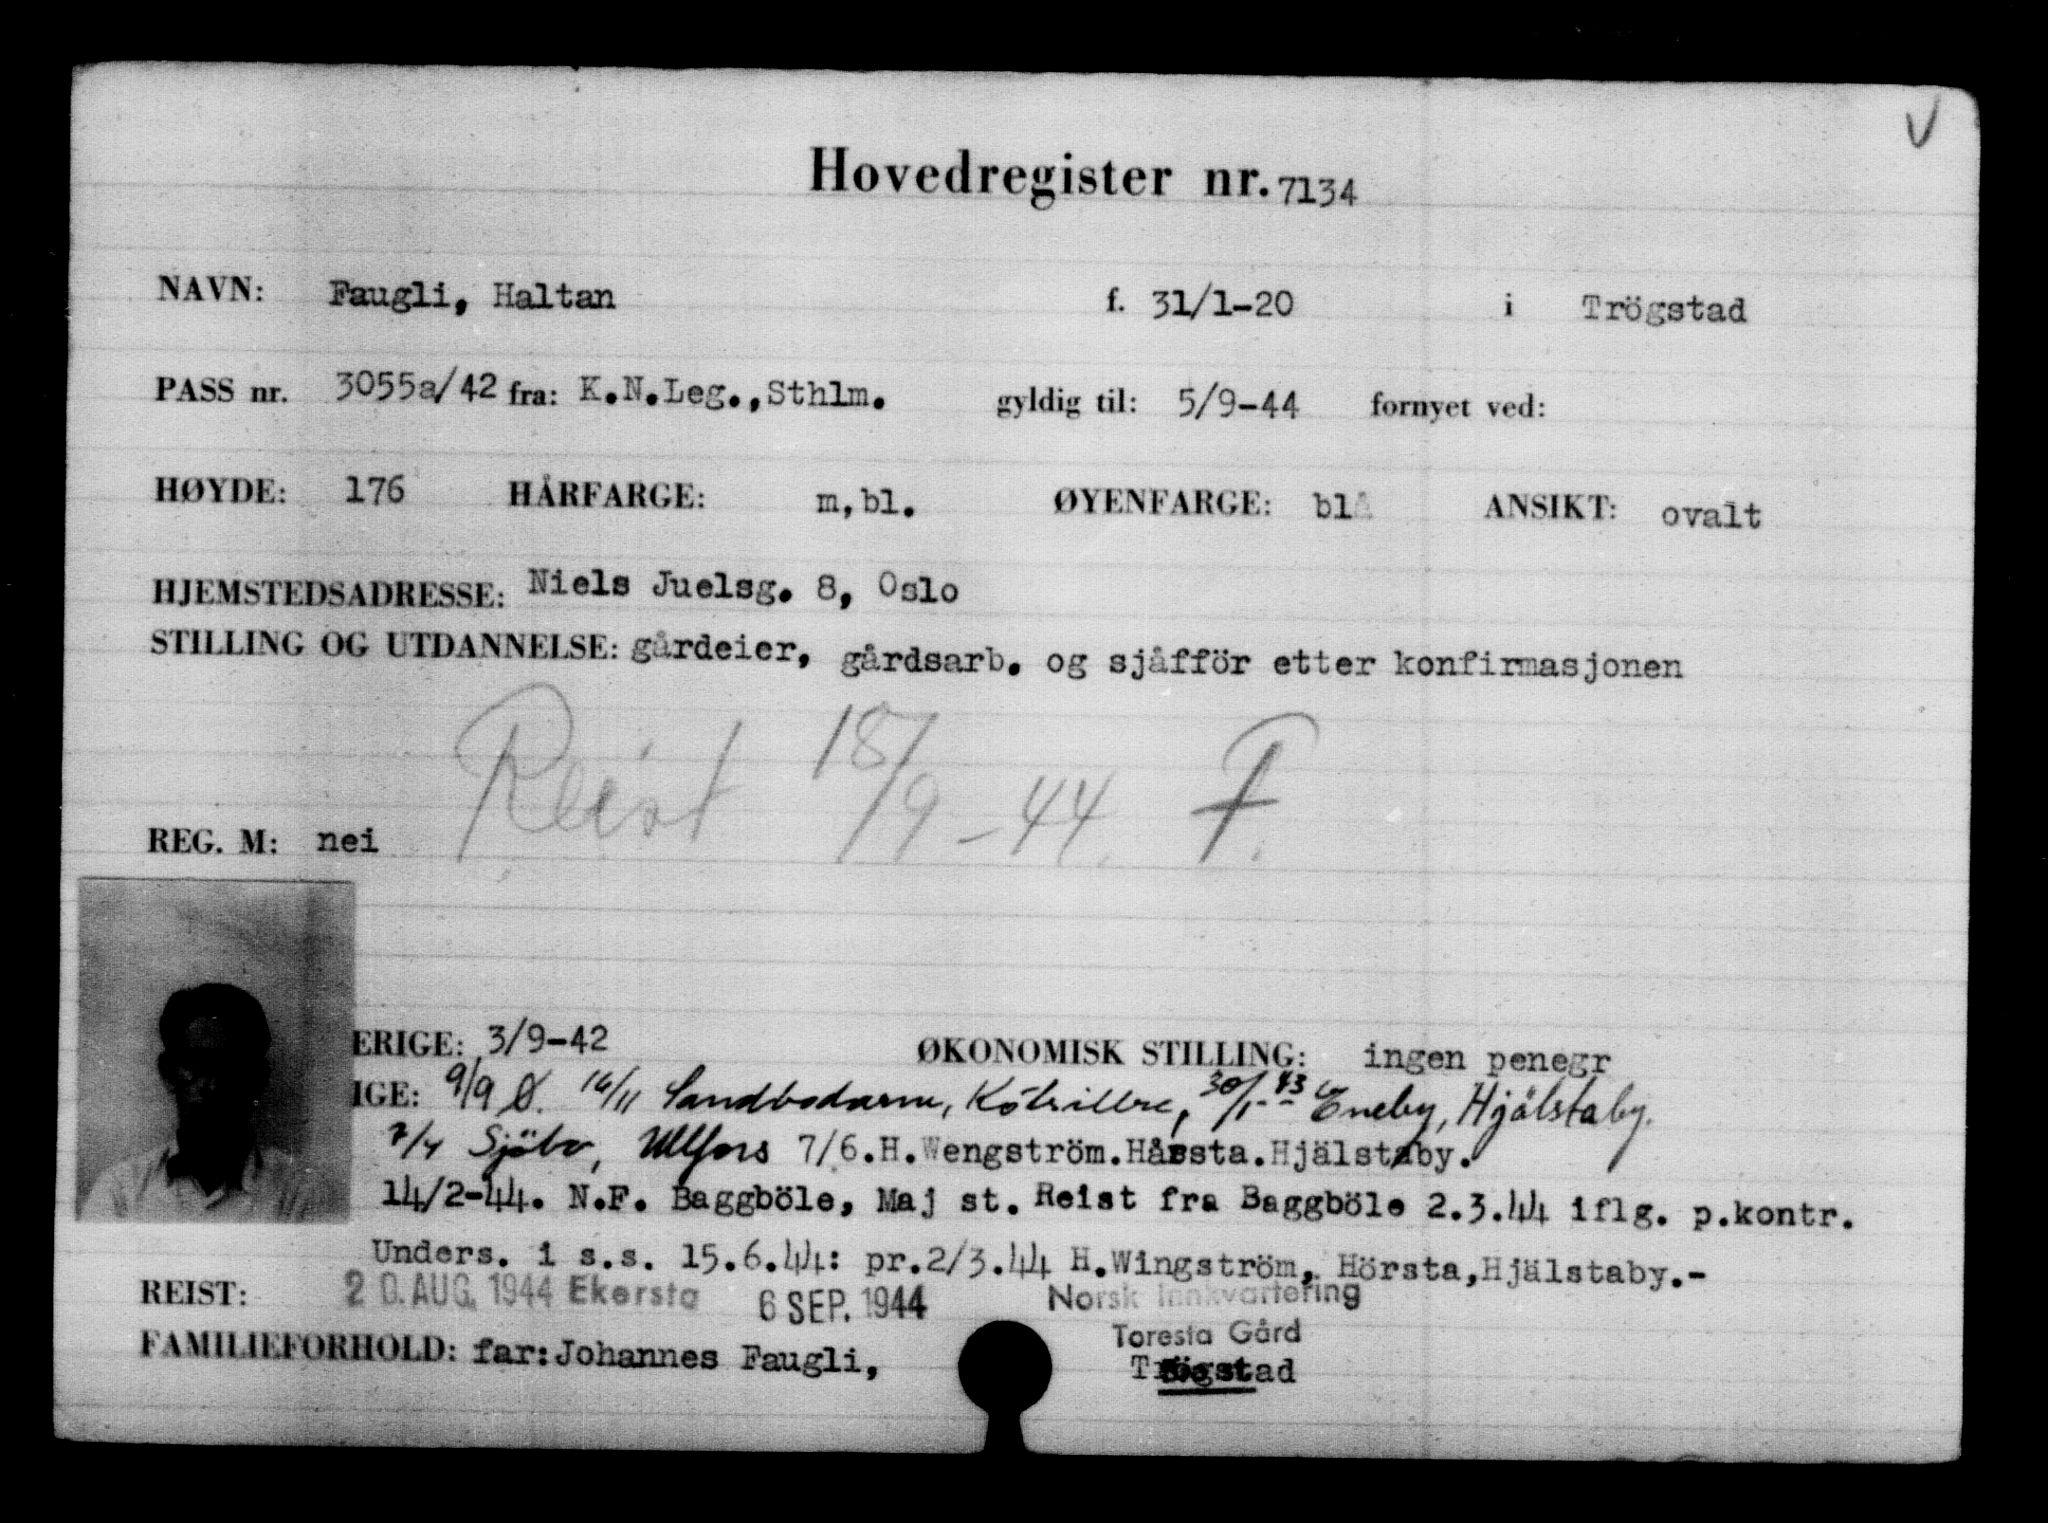 V
Hovedregister nr. 7134
NAVN: Faugli, Haltan f. 31/1-20 i Trögstad
PASS nr. 3055a/42 fra: K.N.Leg.,Sthlm. gyldig til: 5/9-44 fornyet ved:
HØYDE: 176 HÅRFARGE: m,bl. ØYENFARGE: blå ANSIKT: ovalt
HJEMSTEDSADRESSE: Niels Juelsg. 8, Oslo
STILLING OG UTDANNELSE: gårdeier, gårdsarb. og sjåfför etter konfirmasjonen
Reist 18/9-44. F.
REG. M: nei
ERIGE: 3/9-42 ØKONOMISK STILLING: ingen penegr
IGE: 9/9 Ø. 16/11 Sandbodarne, 30/1-43 Eneby, Hjälstaby.
7/4 Sjöbo, Ullfors 7/6.H.Wengström.Hårsta.Hjälstaby.
14/2-44. N.F. Baggböle, Maj st. Reist fra Baggböle 2.3.44 iflg. p.kontr.
Unders. i s.s. 15.6.44: pr.2/3.44 H.Wingström, Hörsta,Hjälstaby.-
REIST: 20. AUG. 1944 Ekersta 6 SEP. 1944 Norsk Innkvartering
Toresta Gård
FAMILIEFORHOLD: far:Johannes Faugli, Trögstad